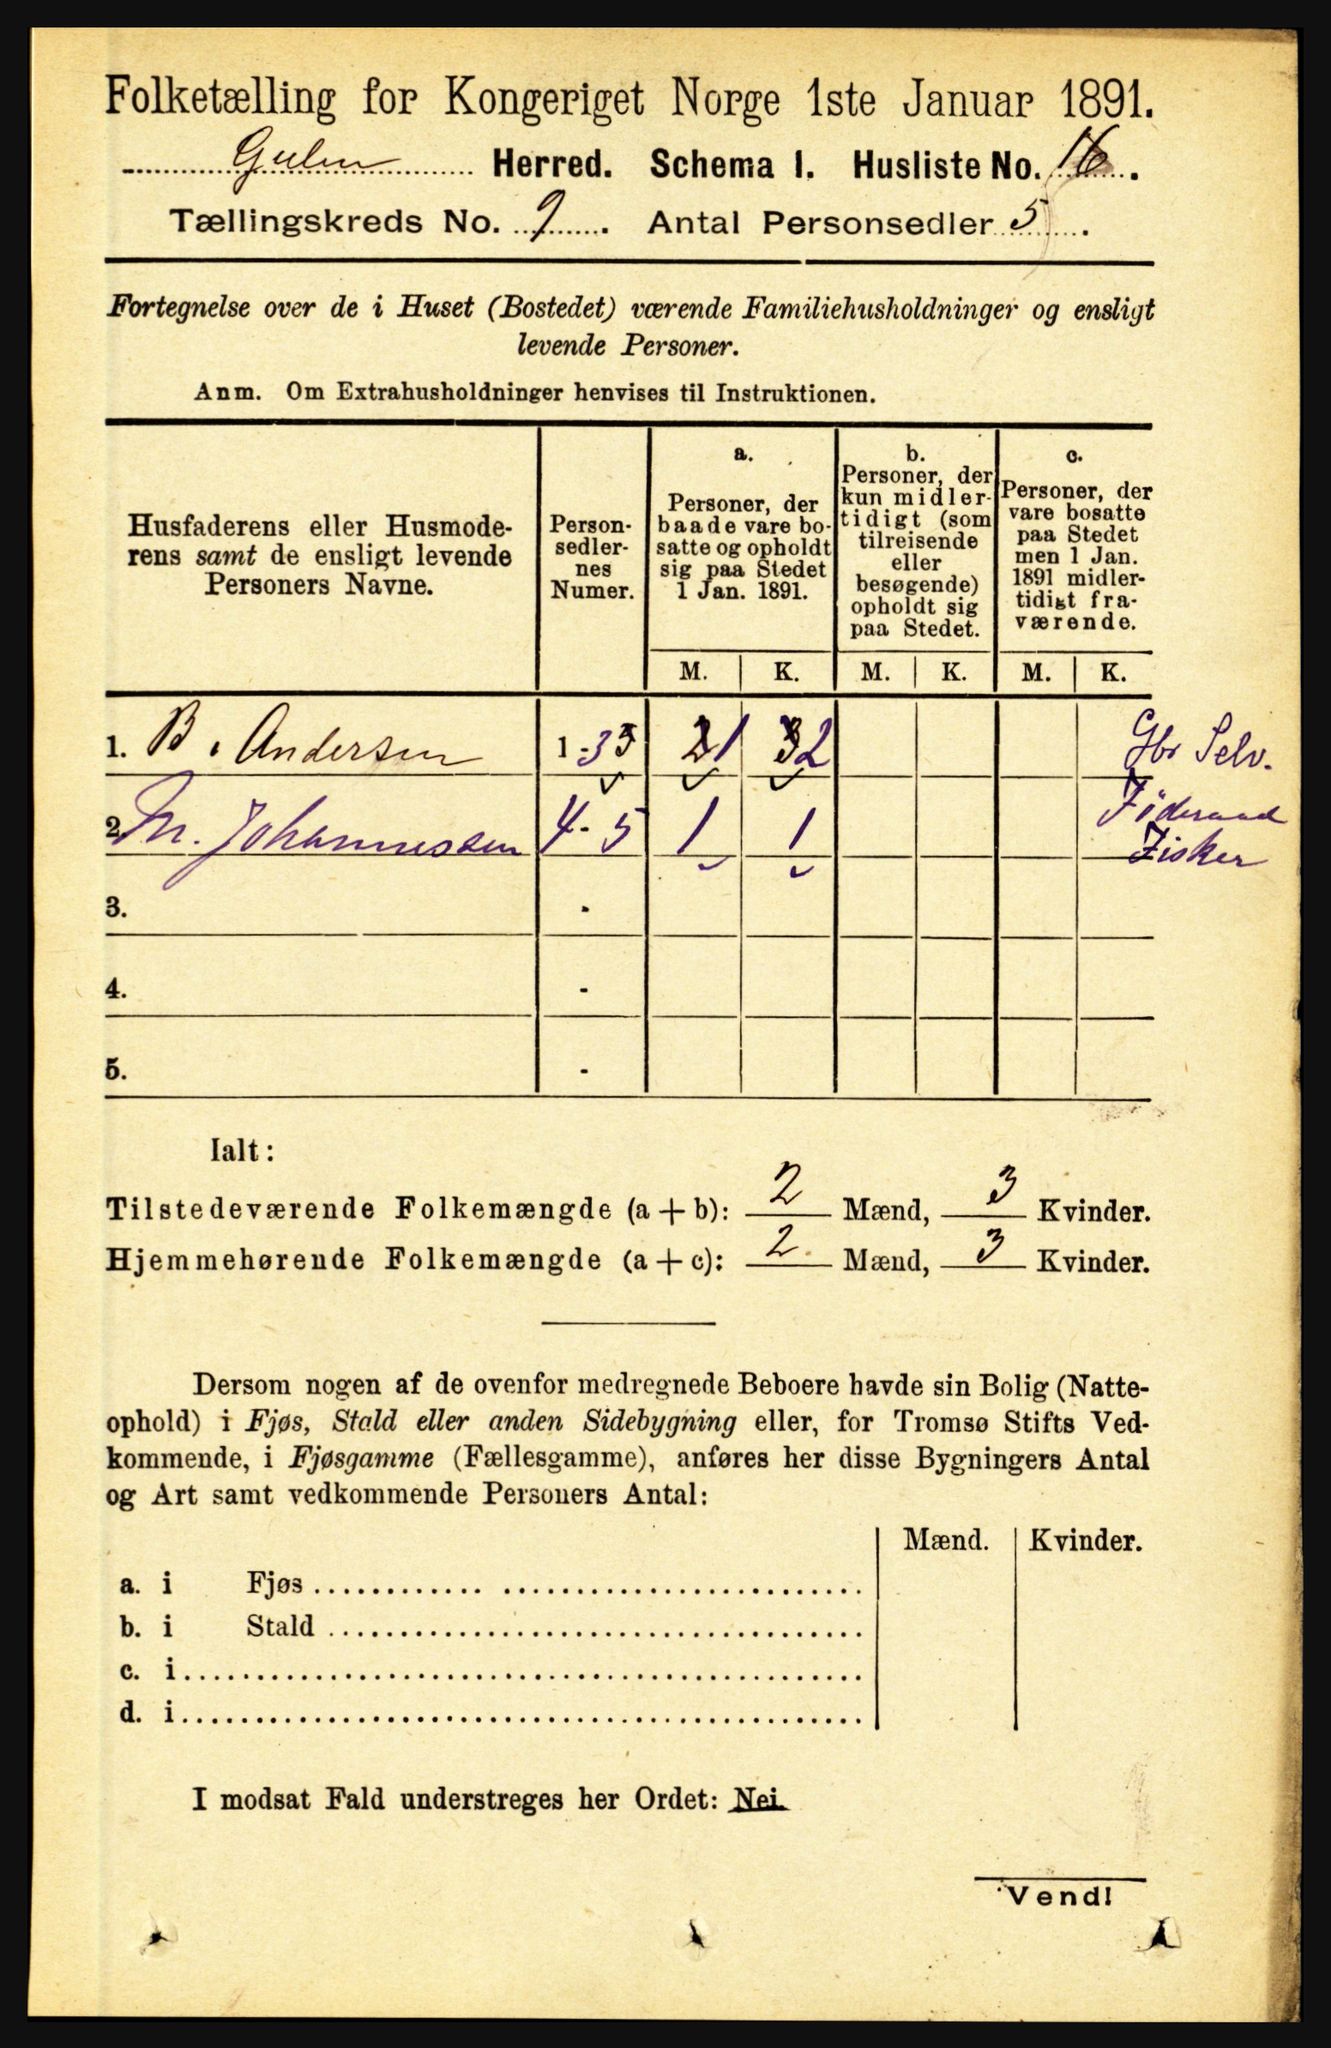 Folketælling for Kongeriget Norge 1ste Januar 1891.
Gulen Herred. Schema I. Husliste No. 16.
Tællingskreds No. 9. Antal Personsedler 5.
Fortegnelse over de i Huset (Bostedet) værende Familiehusholdninger og ensligt
levende Personer.
Anm. Om Extrahusholdninger henvises til Instruktionen.
Husfaderens eller Husmode-
rens samt de ensligt levende
Personers Navne.
Person-
sedler-
nes
Numer.
a.
Personer, der
baade vare bo-
satte og opholdt
sig paa Stedet
1 Jan. 1891.
b.
Personer, der
kun midler-
tidigt (som
tilreisende
eller
besøgende)
opholdt sig
paa Stedet.
c.
Personer, der
vare bosatte
paa Stedet
men 1 Jan.
1891 midler-
tidigt fra-
værende.
M. K. M. K. M. K.
1. B. Andersen 1-3 1 2 Gbr Selv.
2. M. Johannessen 4-5 1 1 Föderaad
Fisker
3. -
4. -
5. -
Ialt:
Tilstedeværende Folkemængde (a + b): 2 Mænd, 3 Kvinder.
Hjemmehørende Folkemængde (a + c): 2 Mænd, 3 Kvinder.
Dersom nogen af de ovenfor medregnede Beboere havde sin Bolig (Natte-
ophold) i Fjøs, Stald eller anden Sidebygning eller, for Tromsø Stifts Ved-
kommende, i Fjøsgamme (Fællesgamme), anføres her disse Bygningers Antal
og Art samt vedkommende Personers Antal:
Mænd. Kvinder.
a. i Fjøs
b. i Stald
c. i
d. i
I modsat Fald understreges her Ordet: Nei
Vend!